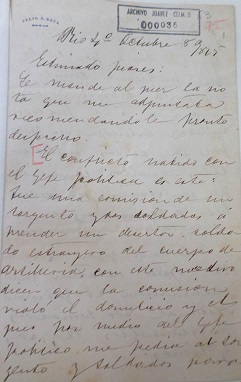 ARCHIVO JUAREZ CELMAN
000036
Rio 4º Octubre 5
Estimado Juarez:
Le mandé al juez la no
ta que me adjuntaba
recomendandole pronto
despacho.
El conflicto habido con
el Gefe politico es este:
fue una comision de un
sargento y dos soldados á
prender un desertor, solda
do estrangero del cuerpo de
Artilleria, con este motivo
dicen que la comision
violó el domicilio y
pues por medio del Gefe
politico me pedia al sar
gento y soldados para